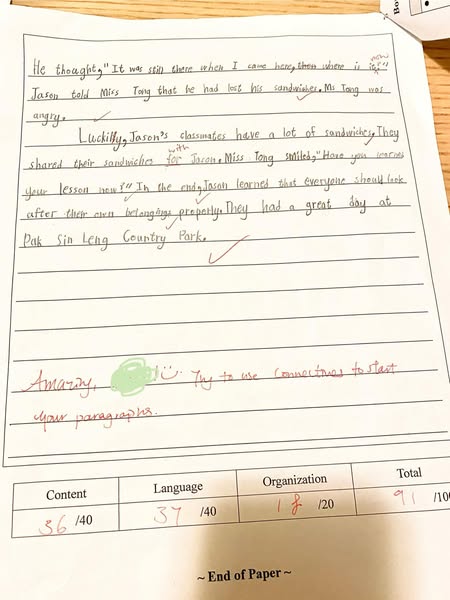 He thought,"It was still there when I came here, then where is it now?"
Jason told Miss Tong that he had lost his sandwiches. Ms Tong was
angry.
Luckily, Jason's classmates have a lot of sandwiches. They
with
shared their sandwiches for Jason. Miss Tong smiled,"Have you learned
your lesson now?" In the end, Jason learned that everyone should look
after their own belongings properly. They had a great day at
Pak Sin Leng Country Park.
Amazing, Try to use connectives to start
your paragraphs.
Content Language Organization Total
36 /40 37 /40 18 /20 91 /100
~ End of Paper ~